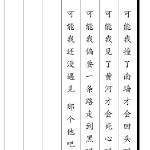 可能我撞了南墙才会回头吧
可能我见了黄河才会死心吧
可能我偏要一条路走到黑吧
可能我还没遇见 那个他吧